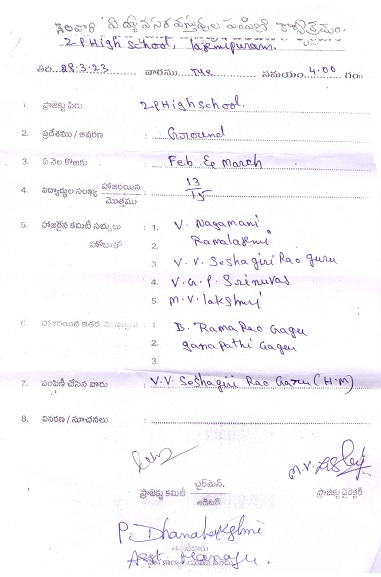 నెలవారి విద్యావసర వస్తువుల పంపిణీ కార్యక్రమం.
Z-P High School, Laxmipuram.
తేది: 28.3.23 వారము Tue సమయం: 4.00 గం॥
1. ప్రాజెక్టు పేరు : Z-P High School.
2. ప్రదేశము / ఆవరణ : Ground
3. ఏ నెల కొఱకు : Feb & March
4. విద్యార్థుల సంఖ్య హాజరయిన / మొత్తము : 13 / 15
5. హాజరైన కమిటీ సభ్యులు : 1. V. Nagamani
హోదాతో 2. Ramalakshmi
3. V. V. Seshagiri Rao guru
4. V.G.P. Srinuvas
5. M.V. lakshmi
6. హాజరయిన ఇతర : 1. B. Rama Rao Gageu
2. ganapathi Gageu
3.
7. పంపిణీ చేసిన వారు : V.V. Seshagiri Rao Garu (H.M)
8. వివరణ / సూచనలు :
ప్రాజెక్టు కమిటీ ఛైర్మెన్, ప్రాజెక్టు డైరెక్టర్
P. Dhanalakshmi
Asst. Manager.